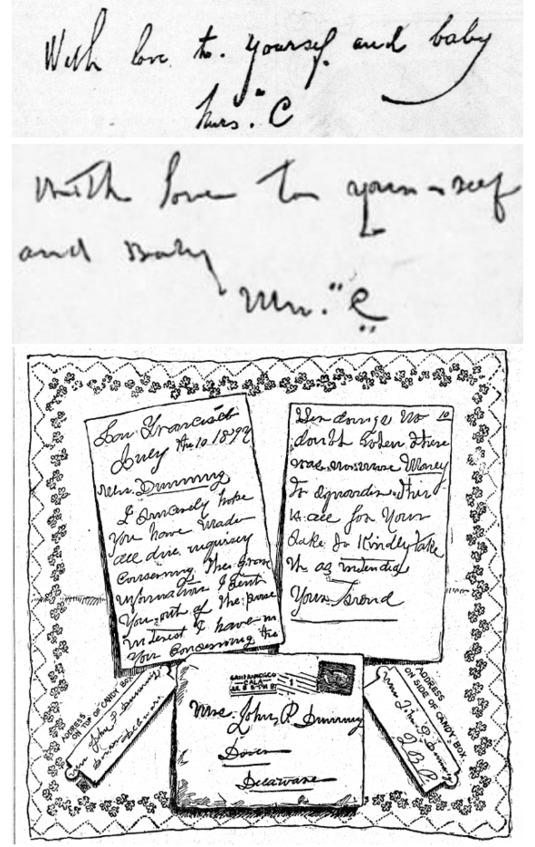 With love to. yourself and baby
Mrs." C
With love to your-self
and Baby
Mrs. "C"
San Francisco
July 10. 189
Mrs. Dunning
I Sincerely hope
you have made
all due
Concerning the
information I sent
You out of the
interest I have in
Your Concerning the
doings No
doubt when there
was no more Money
to squander. This
is all for Your
Sake So Kindly take
it as intended
Your friend
ADDRESS
ON TOP OF CANDY BOX
John P Dunning
SAN FRANCISCO
CALA
Mrs. John P. Dunning
Dover
Delaware
ADDRESS
ON SIDE OF CANDY BOX
Mrs John P Dunning